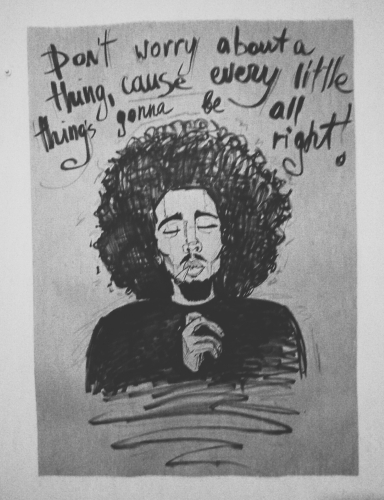 Don't worry about a
thing, cause every little
thing's gonna be all
right!